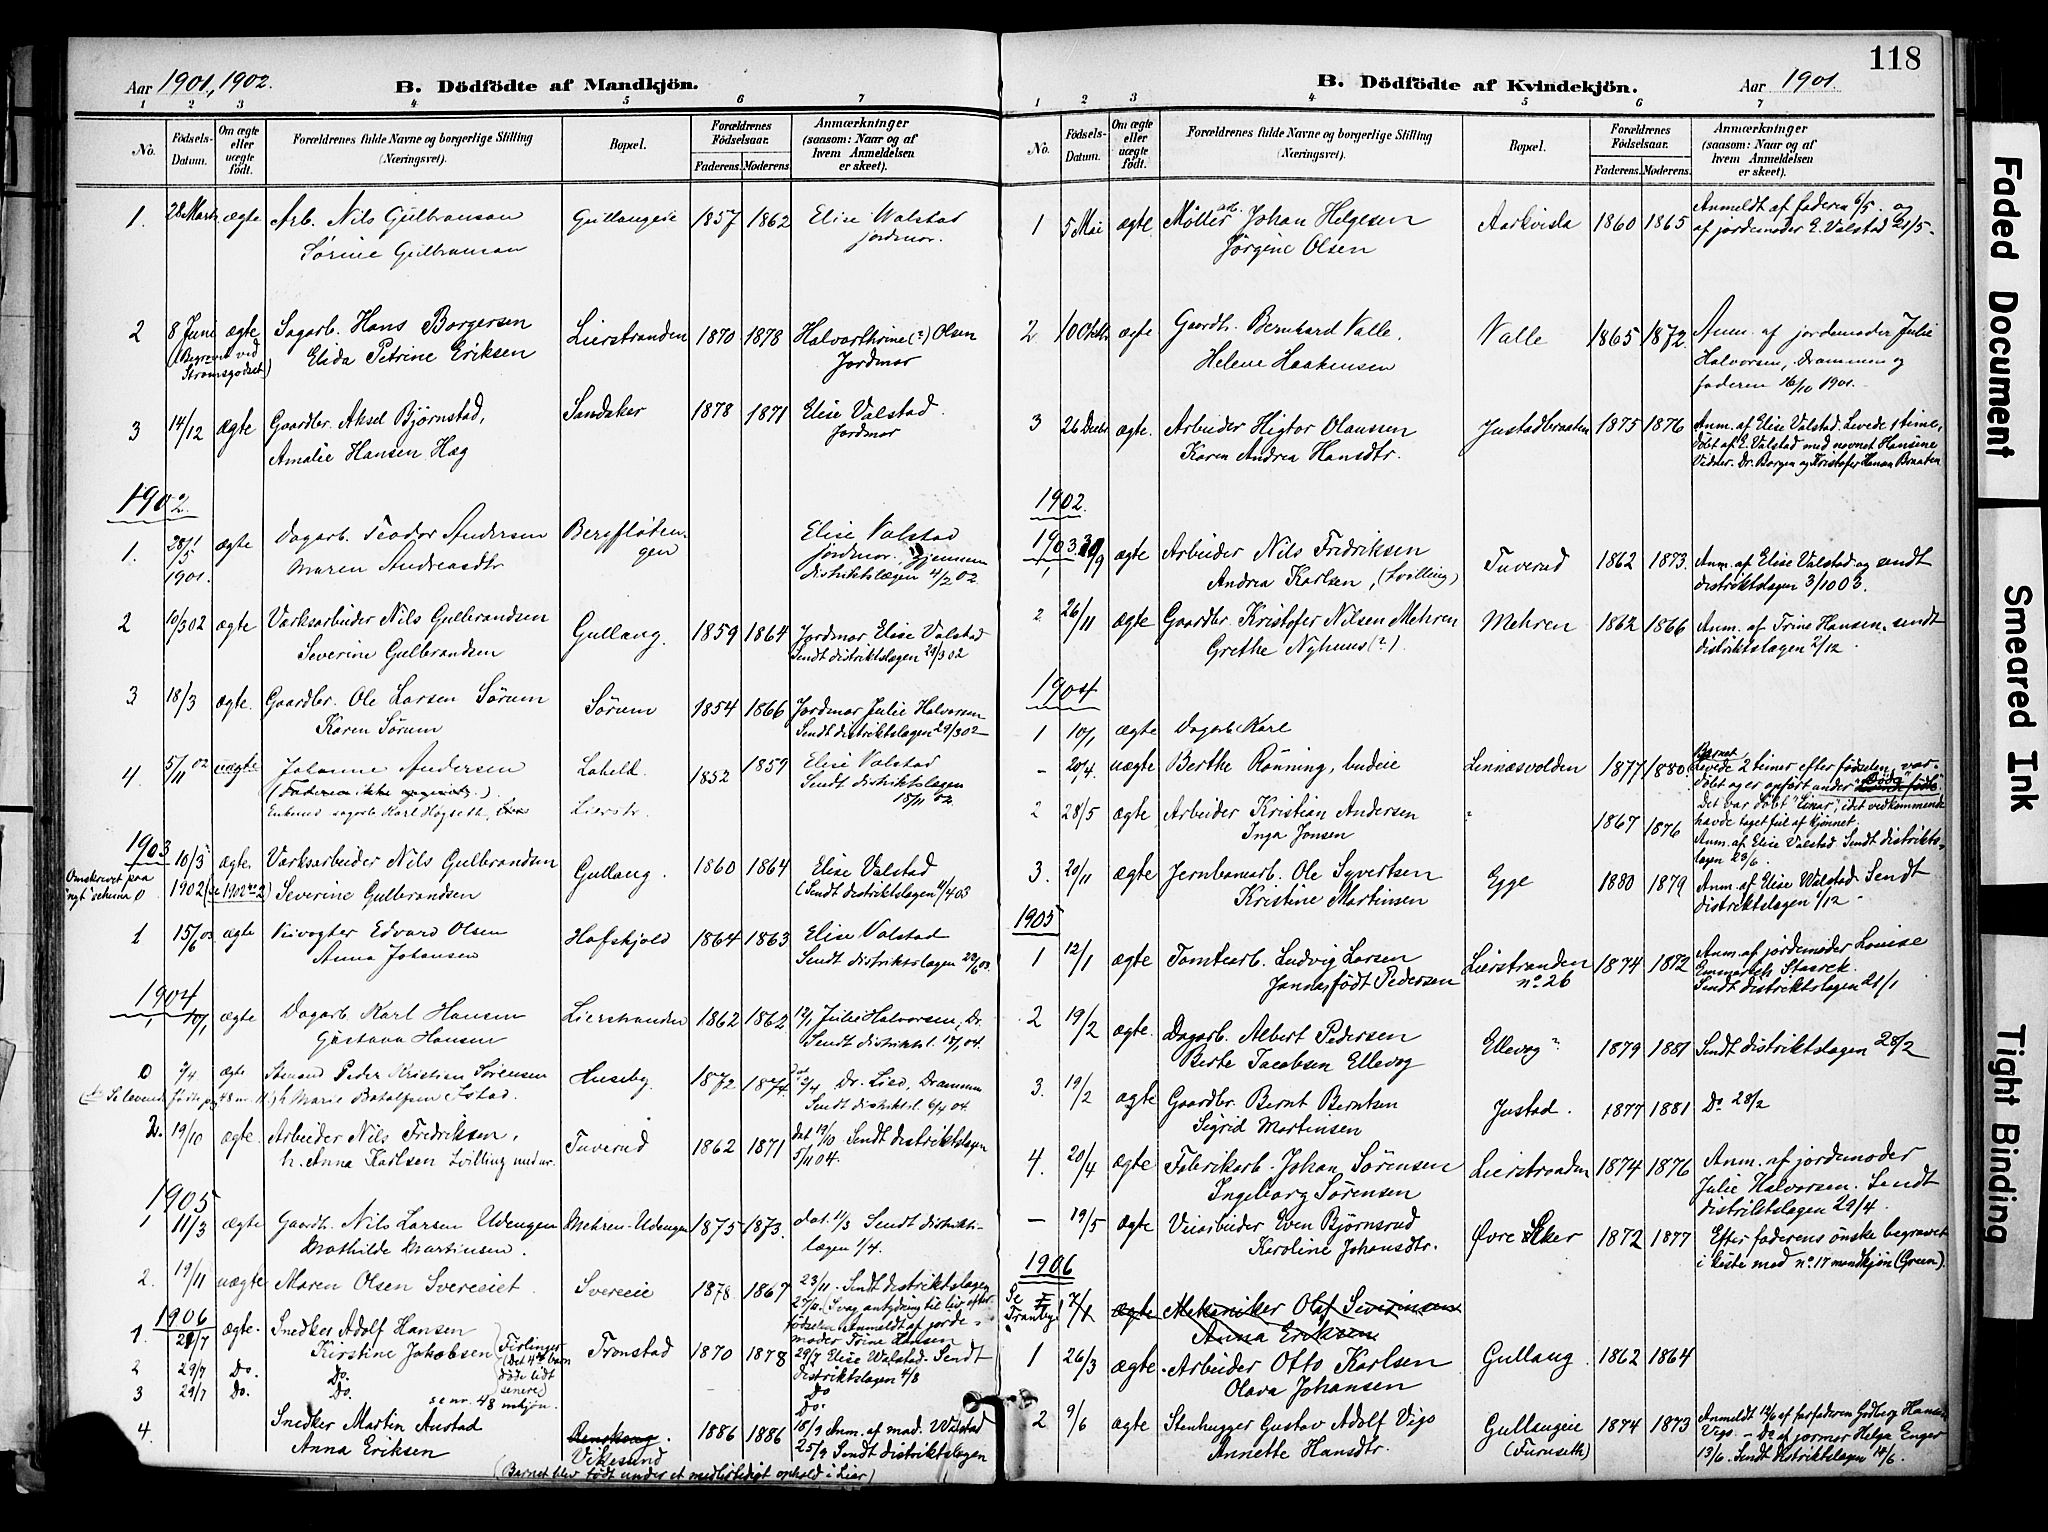 Aar 1901, 1902.
B. Dödfödte af Mandkjön.
1 2 3 4 5 6 7
No.
Födsels-Datum.
Om ægte eller uægte födt.
Forældrenes fulde Navne og borgerlige Stilling (Næringsvei).
Bopæl.
Forældrenes Födselsaar.
Faderens. Moderens.
Anmærkninger (saasom: Naar og af hvem Anmeldelsen er skeet).
1. 28 Marts ægte Arb. Nils Gulbransen Gullaugeie 1857 1862 Elise Walstad
Sørine Gulbransen jordmor.
2 8 Juni ægte Sagarb. Hans Borgersen Lierstranden 1870 1878 Halvarthrine (?) Olsen
(Begravet ved Strømsgodset) Elida Petrine Eriksen Jordmor
3 14/12 ægte Gaardbr. Aksel Bjørnstad, Sandaker 1878 1871 Elise Valstad
Amalie Hansen Hæg Jordmor
1902
1. 28/5 1901. ægte Dagarb. Teodor Andersen Bergfløten- Elise Valstad
Maren Andreasdtr gen jordmor. Gjennem
distriktslægen 4/2 02.
2 10/3 02 ægte Værksarbeider Nils Gulbrandsen Gullaug. 1859 1864 Jordmor Elise Valstad
Severine Gulbrandsen Sendt distriktslægen 29/3 02
3 18/3 ægte. Gaardbr. Ole Larsen Sørum Sørum 1854 1866 Jordmor Julie Halvorsen
Karen Sørum Sendt distriktslægen 29/3 02
4 5/11 02 uægte Johanne Andersen Laheld. 1852 1859 Elise Valstad
(Faderen ikke opgivet.) Sendt distriktslægen
Enkemd sagarb Karl Høgseth, Lierstr. 15/11 02.
1903
Omskrevet paa "nyt" schema 0 10/3 1902 ægte. Værksarbeider Nils Gulbrandsen Gullaug. 1860 1864 Elise Valstad
(se 1902 no 2) Severine Gulbrandsen (Sendt distriktslægen 4/4 03
1 15/6 03 ægte Veivogter Edvard Olsen Hafskjold 1864 1863 Elise Valstad
Anna Johansen Sendt distriktslægen 22/6 03.
1904
1 10/1 ægte Dagarb Karl Hansen Lierstranden 1862 1862 12/1 Julie Halvorsen, Dr.
Gustava Hansen Sendt distriktsl. 18/1 04.
0 2/4. ægte Peder Kristian Sørensen Huseby. 1872 1874 Dr. Lied, Drammen
h Marie Sendt distriktsl. 6/4 04.
2. 19/10 ægte. Arbeider Nils Fredriksen, Tuverud 1862 1871 dat 19/10. Sendt distriktslægen
h. Anna Karlsen 5/11 04.
1905
1 11/3 ægte Gaardb. Nils Larsen Udengen Mehren-Udengen 1875 1873. dat. 11/3 Sendt distrikts-
Mathilde Martinsen. lægen 1/4.
2. 19/11 uægte Maren Olsen Svereeiet Svereeie 1878 1867 23/11. Sendt distriktslægen
27/11. (Svag antydning til liv efter
fødselen Anmeldt af jorde-
moder Trine Hansen
1906
1. 29/7 ægte. Snedker Adolf Hansen (Firlinger Tronstad 1870 1878 29/7 Elise Walstad. Sendt
Kirstine Jakobsen (Det 4de barn distriktslægen 4/8
2 29/7 Do. Do. døde lidt Do
3 29/7 Do. Do. senere) Do.
se nr. 48 mkjøn.
4 Snedker Martin Austad 1886 1886 18/9 Anm. af mad. Walstad
Anna Eriksen Vikesund 25/9 Sendt distriktslægen
(Barnet blev født under et midlertidigt ophold i Lier)
118
B. Dödfödte af Kvindekjön.
Aar 1901.
1 2 3 4 5 6 7
No.
Födsels-Datum.
Om ægte eller uægte födt.
Forældrenes fulde Navne og borgerlige Stilling (Næringsvei).
Bopæl.
Forældrenes Födselsaar.
Faderens. Moderens.
Anmærkninger (saasom: Naar og af hvem Anmeldelsen er skeet).
1 5 Mai ægte Møller arb. Johan Helgesen Aarkvisla 1860 1865 Anmeldt af faderen 6/5. og
Jørgine Olsen af jordemoder E. Valstad 21/5.
2 10 Oktbr ægte Gaardb. Bernhard Valle. Valle 1865 1872 Anm. af jordemoder Julie
Helene Haakensen Halvorsen, Drammen og
faderen 16/10 1901.
3 26 Decbr ægte. Arbeider Higtor Olaussen Justadbraaten 1875 1876 Anm. af Elise Valstad. Levede 1 time,
Karen Andrea Hansdtr. døbt af E. Valstad med navnet Hansine
Vidner. Dr. Borgen og Kristofer Hansen Braaten
1902.
1903.
1 29/9 ægte Arbeider Nils Fredriksen Tuverud 1862 1873. Anm. af Elise Valstad og sendt
Andrea Karlsen, (tvilling) distriktslægen 3/10 03.
2 26/11 ægte Gaardbr. Kristofer Nilsen Mehren Mehren 1862 1866 Anm. af Trine Hansen. sendt
Grethe Nyhuus (?). distriktslægen 2/12.
1904
1 10/1 ægte Dagarb Karl
- 20/4. uægte Berthe Rönning, budeie Linnæsvolden 1877 1880. Barnet levede 2 timer efter fødselen, var-
døbt og er opført under "levende fødte".
Det var døbt "Einar", idet vedkommende
havde taget feil af kjønnet.
2 28/5 ægte Arbeider Kristian Andersen " 1867 1876
Inga Jonsen Anm. af Elise Valstad Sendt distrikts-
lægen 23/6.
3. 20/11 ægte Jernbanearb. Ole Syvertsen Egge 1880 1879 Anm. af Elise Walstad. Sendt
Kristine Martinsen distriktslægen 1/12
1905
1 12/1 ægte Tomtearb. Ludvig Larsen Lierstranden 1874 1872 Anm. af jordemoder Louise
Janna, født Pedersen no. 26 Sendt distriktslægen 21/1
2 19/2 ægte. Dagarb. Albert Pedersen Ellevog 1879 1881 Sendt distriktslægen 28/2
Berte Jacobsen Ellevog
3. 19/2 ægte Gaardbr. Bernt Berntsen Justad. 1877 1881 Do 28/2
Sigrid Martinsen
4. 20/4 ægte Fabrikarb. Johan Sørensen Lierstranden 1874 1876 Anm. af jordemoder
Ingeborg Sørensen Julie Halvorsen. Sendt
distriktslægen 29/4.
- 19/5 ægte Veiarbeider Even Bjørnsrud Øvre Eker 1872 1877 Efter faderens ønske begravet
Karoline Johansdtr. i kiste med no. 17 mandkjøn (Green).
1906
Se Tranby! 7/1 ægte Mekaniker Olaf Severinsen
Anna Eriksen
1 26/3 ægte. Arbeider Otto Karlsen Gullaug 1862 1864
Olava Johansen
2 9/6 ægte Stenhugger Gustav Adolf Vigo Gullaugeie 1874 1873 Anmeldt 12/6 af farfaderen Hansen
Annette Hansdtr. (Furuseth) Vigo. – Do af jormor Helga Enger
13/6. Sendt Distriktslægen 14/6.
Faded Document
Smeared Ink
Tight Binding